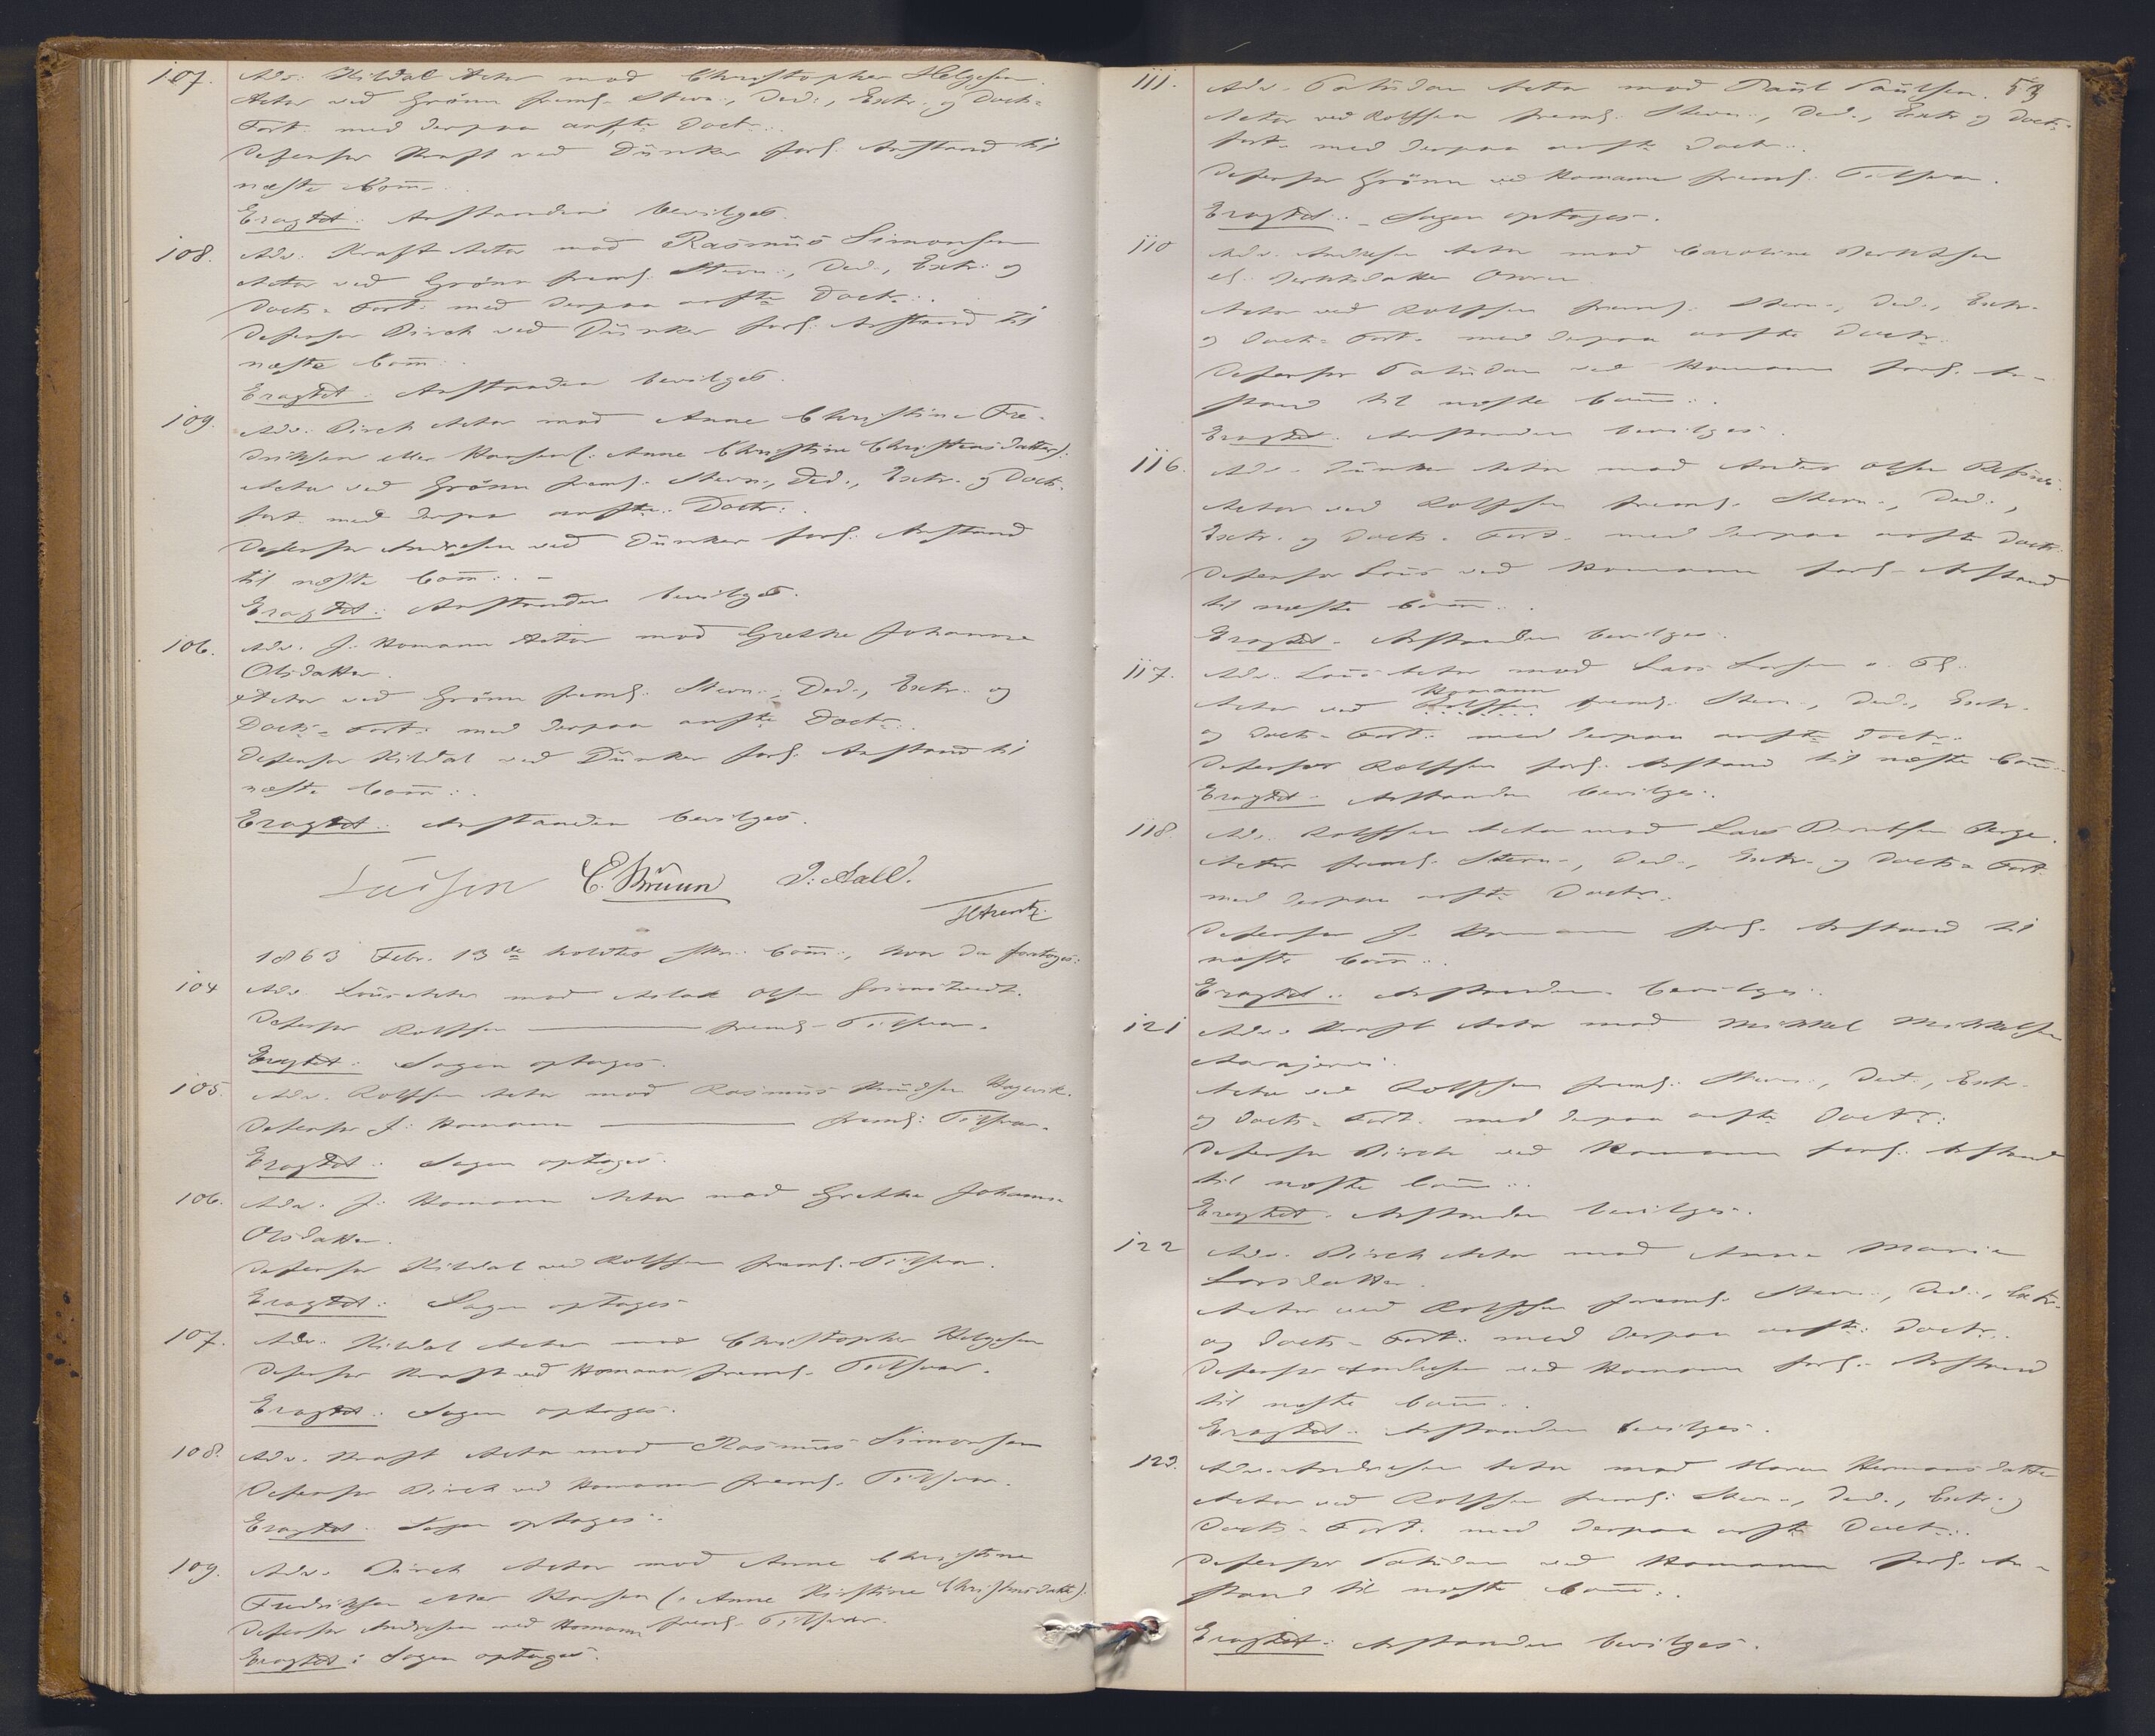 107. Adv. Kildal Actor mod Christopher Helgesen.
Actor ved Grönn freml. Stevn., Ded., Extr. og Doct.
Fort. med derpaa anfte Doctr.
Defensor Kraft ved Dünker forl. Anstand til
næste Com̄.
Eragtet: Anstanden bevilges.
108. Adv. Kraft Actor mod Rasmus Simonsen
Actor ved Grönn freml. Stevn., Ded., Extr. og
Docts Fort. med derpaa anfte Doctr.
Defensor Birch ved Dünker forl. Anstand til
næste Com̄.
Eragtet: Anstanden bevilges.
109. Adv. Birch Actor mod Anne Christine Fre-
driksen eller Hansen (: Anne Christine Christensdatter :)
Actor ved Grönn freml. Stevn., Ded., Extr. og Docts
fort. med derpaa anfte Doctr.
Defensor Andresen ved Dünker forl. Anstand
til næste Com̄. -
Eragtet: Anstanden bevilges.
106. Adv. J. Homann Actor mod Grethe Johanne
Olsdatter.
Actor ved Grönn freml. Stevn., Ded., Extr. og
Docts Fort. med derpaa anfte Doctr.
Defensor Kildal ved Dünker forl. Anstand til
næste Com̄.
Eragtet: Anstanden bevilges.
Lasson C. Bruun J. Aall.
1863 Febr. 13de holdtes Com̄., hvor da foretoges:
104 Adv. Lous Actor mod Aslak Olsen
Defensor Rolffsen — freml. Tilsvar.
Eragtet: Sagen optages.
105. Adv. Rolffsen Actor mod Rasmus Knudsen Hagevik.
Defensor J. Homann — freml. Tilsvar.
Eragtet: Sagen optages.
106. Adv. J. Homann Actor mod Grethe Johanne
Olsdatter.
Defensor Kildal ved Rolffsen freml. Tilsvar.
Eragtet: Sagen optages
107. Adv. Kildal Actor mod Christopher Helgesen
Defensor Kraft ved Homann freml. Tilsvar.
Eragtet: Sagen optages.
108. Adv. Kraft Actor mod Rasmus Simonsen
Defensor Birch ved Homann freml. Tilsvar.
Eragtet: Sagen optages.
109. Adv. Birch Actor mod Anne Christine
Fredriksen eller Hansen (: Anne Kirstine Christensdatter :)
Defensor Andresen ved Homann freml. Tilsvar.
Eragtet: Sagen optages.
53
111. Adv. Actor mod Paul Paulsen.
Actor ved Rolffsen freml. Stevn., Ded., Extr. og Docts
fort. med derpaa anfte Doctr.
Defensor Grönn ved Homann freml. Tilsvar.
Eragtet: Sagen optages.
110 Adv. Andresen Actor mod Caroline
el.
Actor ved Rolffsen freml. Stevn., Ded., Extr.
og Docts Fort. med derpaa anfte Doctr.
Defensor ved Homann forl. An-
stand til næste Com̄.
Eragtet: Anstanden bevilges.
116. Adv. Dünker Actor mod Anders Olsen
Actor ved Rolffsen freml. Stevn., Ded.,
Extr. og Docts Fort. med derpaa anfte Doctr.
Defensor Lous ved Homann forl. Anstand
til næste Com̄.
Eragtet: Anstanden bevilges.
117. Adv. Lous Actor mod Lars Larsen o. Fl.
Homann
Actor ved Rolffsen freml. Stevn., Ded., Extr.
og Docts Fort. med derpaa anfte Doctr.
Defensor Rolffsen forl. Anstand til næste Com̄.
Eragtet: Anstanden bevilges.
118. Adv. Rolffsen Actor mod Lars Berntsen Berge.
Actor freml. Stevn., Ded., Extr. og Docts Fort.
med derpaa anfte Doctr.
Defensor J. Homann forl. Anstand til
næste Com̄.
Eragtet: Anstanden bevilges.
121 Adv. Kraft Actor mod Mikkel Mikkelsen
Actor ved Rolffsen freml. Stevn., Ded., Extr.
og Docts Fort. med derpaa anfte Doctr.
Defensor Birch ved Homann forl. Anstand
til næste Com̄.
Eragtet: Anstanden bevilges.
122 Adv. Birch Actor mod Anne Marie
Larsdatter.
Actor ved Rolffsen freml. Stevn., Ded., Extr.
og Docts Fort. med derpaa anfte Doctr.
Defensor Andresen ved Homann forl. Anstand
til næste Com̄.
Eragtet: Anstanden bevilges.
123. Adv. Andresen Actor mod Maren Hermansdatter
Actor ved Rolffsen freml. Stevn., Ded., Extr. og
Docts Fort. med derpaa anfte Doctr.
Defensor ved Homann forl. An-
stand til næste Com̄.
Eragtet: Anstanden bevilges.